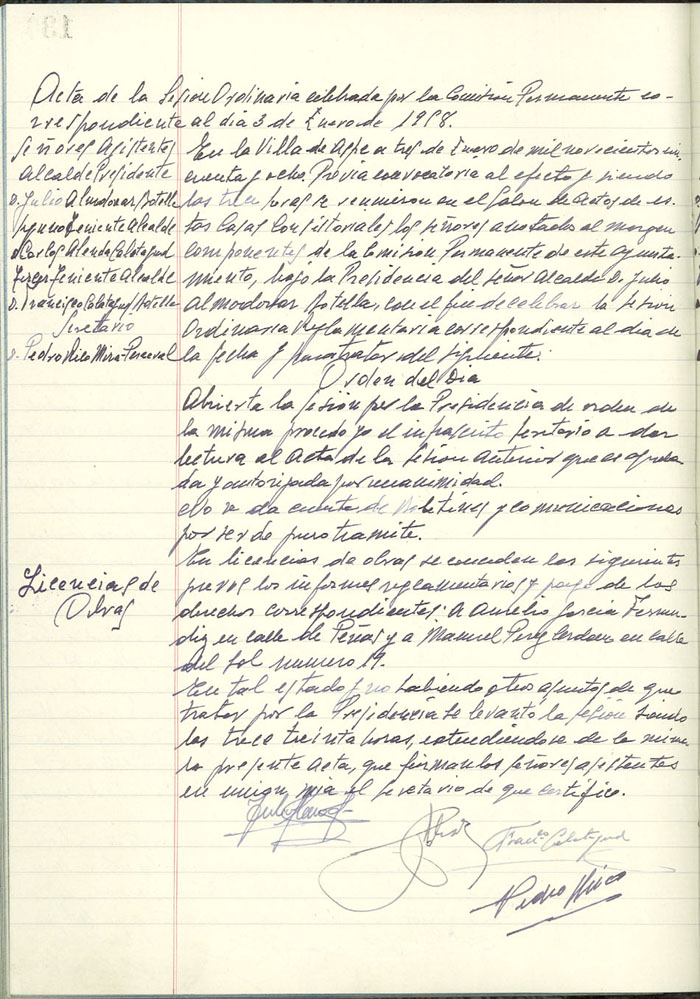 Acta de la Sesion Ordinaria celebrada por la Comisión Permanente co-
rrespondiente al dia 3 de Enero de 1958.
Señores Asistentes
Alcalde Presidente
D. Julio Almodovar Botella
Primer Teniente Alcalde
D. Carlos Alenda Calatayud
Tercer Teniente Alcalde
D. Francisco Calatayud Botella
Secretario
D. Pedro Rico Mira-Perceval
En la Villa de Aspe a tres de Enero de mil novecientos cin-
cuenta y ocho, Previa convocatoria al efecto y siendo
las trece horas se reunieron en el Salon de Actos de es-
tas Casas Consistoriales los señores anotados al margen
componentes de la Comision Permanente de este Ayunta-
miento, bajo la Presidencia del Señor Alcalde D. Julio
Almodovar Botella, con el fin de celebrar la Sesion
Ordinaria Reglamentaria correspondiente al dia de
la fecha y para tratar del siguiente:
Orden del Dia
Abierta la sesion por la Presidencia de orden de
la misma procedo yo el infrascrito secretario a dar
lectura al Acta de la sesion anterior que es aproba-
da y autorizada por unanimidad.
No se da cuenta de Boletines y comunicaciones
por ser de puro tramite.
Licencias de
Obras
En licencias de obras se conceden las siguientes
previos los informes reglamentarios y pago de los
derechos correspondientes: A Aurelio Garcia
en calle de Peñas y a Manuel Perez Cerdan en calle
del Sol numero 19.
En tal estado y no habiendo otros asuntos de que
tratar por la Presidencia se levantó la sesion siendo
las trece treinta horas, extendiendose de la misma
la presente acta, que firman los señores asistentes
en union mia el Secretario de que certifico.
Franco Calatayud
Pedro Rico